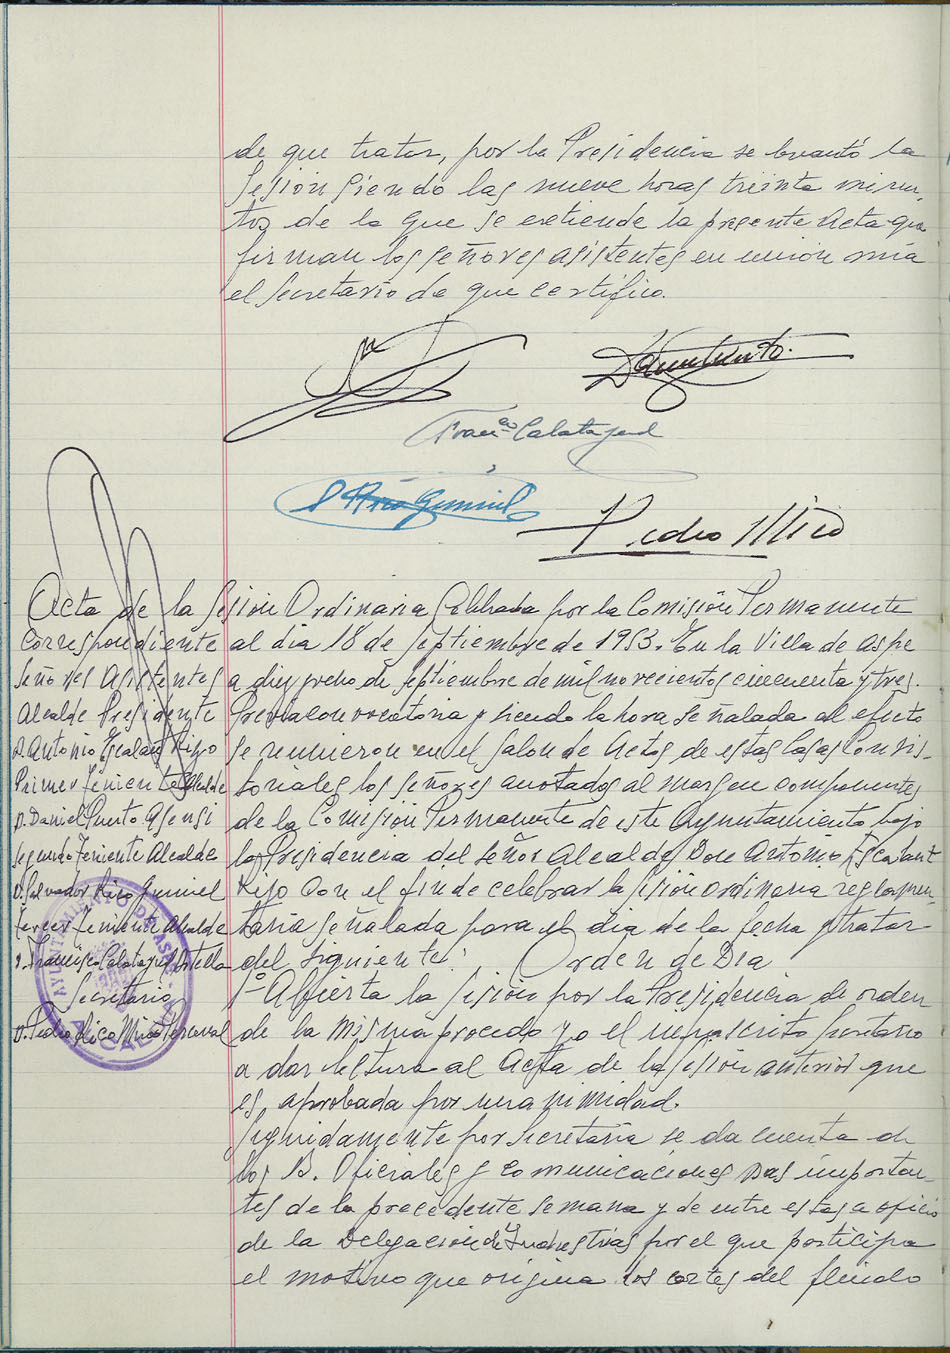 de que tratar, por la Presidencia se levantó la
sesion siendo las nueve horas treinta minu-
tos de la que se extiende la presente Acta que
firman los señores asistentes en union mia
el Secretario de que certifico.
D Puerto
Franco Calatayud
S Rizo Gumiel
Pedro Mico
Acta de la Sesion Ordinaria Celebrada por la Comisión Permanente
correspondiente al dia 18 de septiembre de 1953. En la Villa de Aspe
a diez y ocho de septiembre de mil novecientos cincuenta y tres.
Previa convocatoria y siendo la hora señalada al efecto
se reunieron en el Salon de Actos de estas Casas Consis-
toriales los señores anotados al margen componentes
de la Comisión Permanente de este Ayuntamiento bajo
la Presidencia del Señor Alcalde Don Antonio Escalant
Rizo con el fin de celebrar la sesión ordinaria reglamen-
taria señalada para el dia de la fecha y tratar
del siguiente: Orden de Dia
Señores Asistentes
Alcalde Presidente
D. Antonio Escalant Rizo
Primer Teniente Alcalde
D. Daniel Puerto Asensi
Segundo Teniente Alcalde
D. Salvador Rizo Gumiel
Tercer Teniente Alcalde
D. Francisco Calatayud Botella
Secretario
D. Pedro Rico Mico
AYUNTAMIENTO DE ASPE
ALICANTE
1º Abierta la sesión por la Presidencia de orden
de la misma procedo yo el infrascrito Secretario
a dar lectura al Acta de la sesión anterior que
es aprobada por unanimidad.
Seguidamente por Secretaria se da cuenta de
los B. Oficiales y comunicaciones mas importan-
tes de la precedente semana y de entre estas a oficio
de la Delegación de Industrias por el que participa
el motivo que origina los cortes del fluido